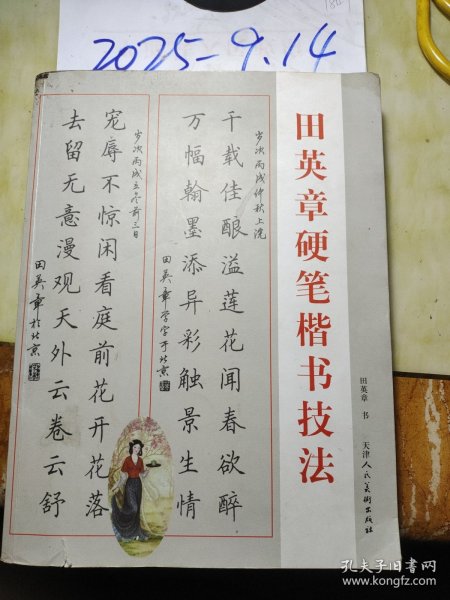 2025-9.14
田英章硬笔楷书技法
田英章 书
天津人民美術出版社
千载佳酿溢莲花闻春欲醉
万幅翰墨添异彩触景生情
岁次丙戌仲秋上浣
田英章学字于北京
宠辱不惊闲看庭前花开花落
去留无意漫观天外云卷云舒
岁次丙戌立冬前三日
田英章于北京
孔夫子旧书网
www.kongfz.com